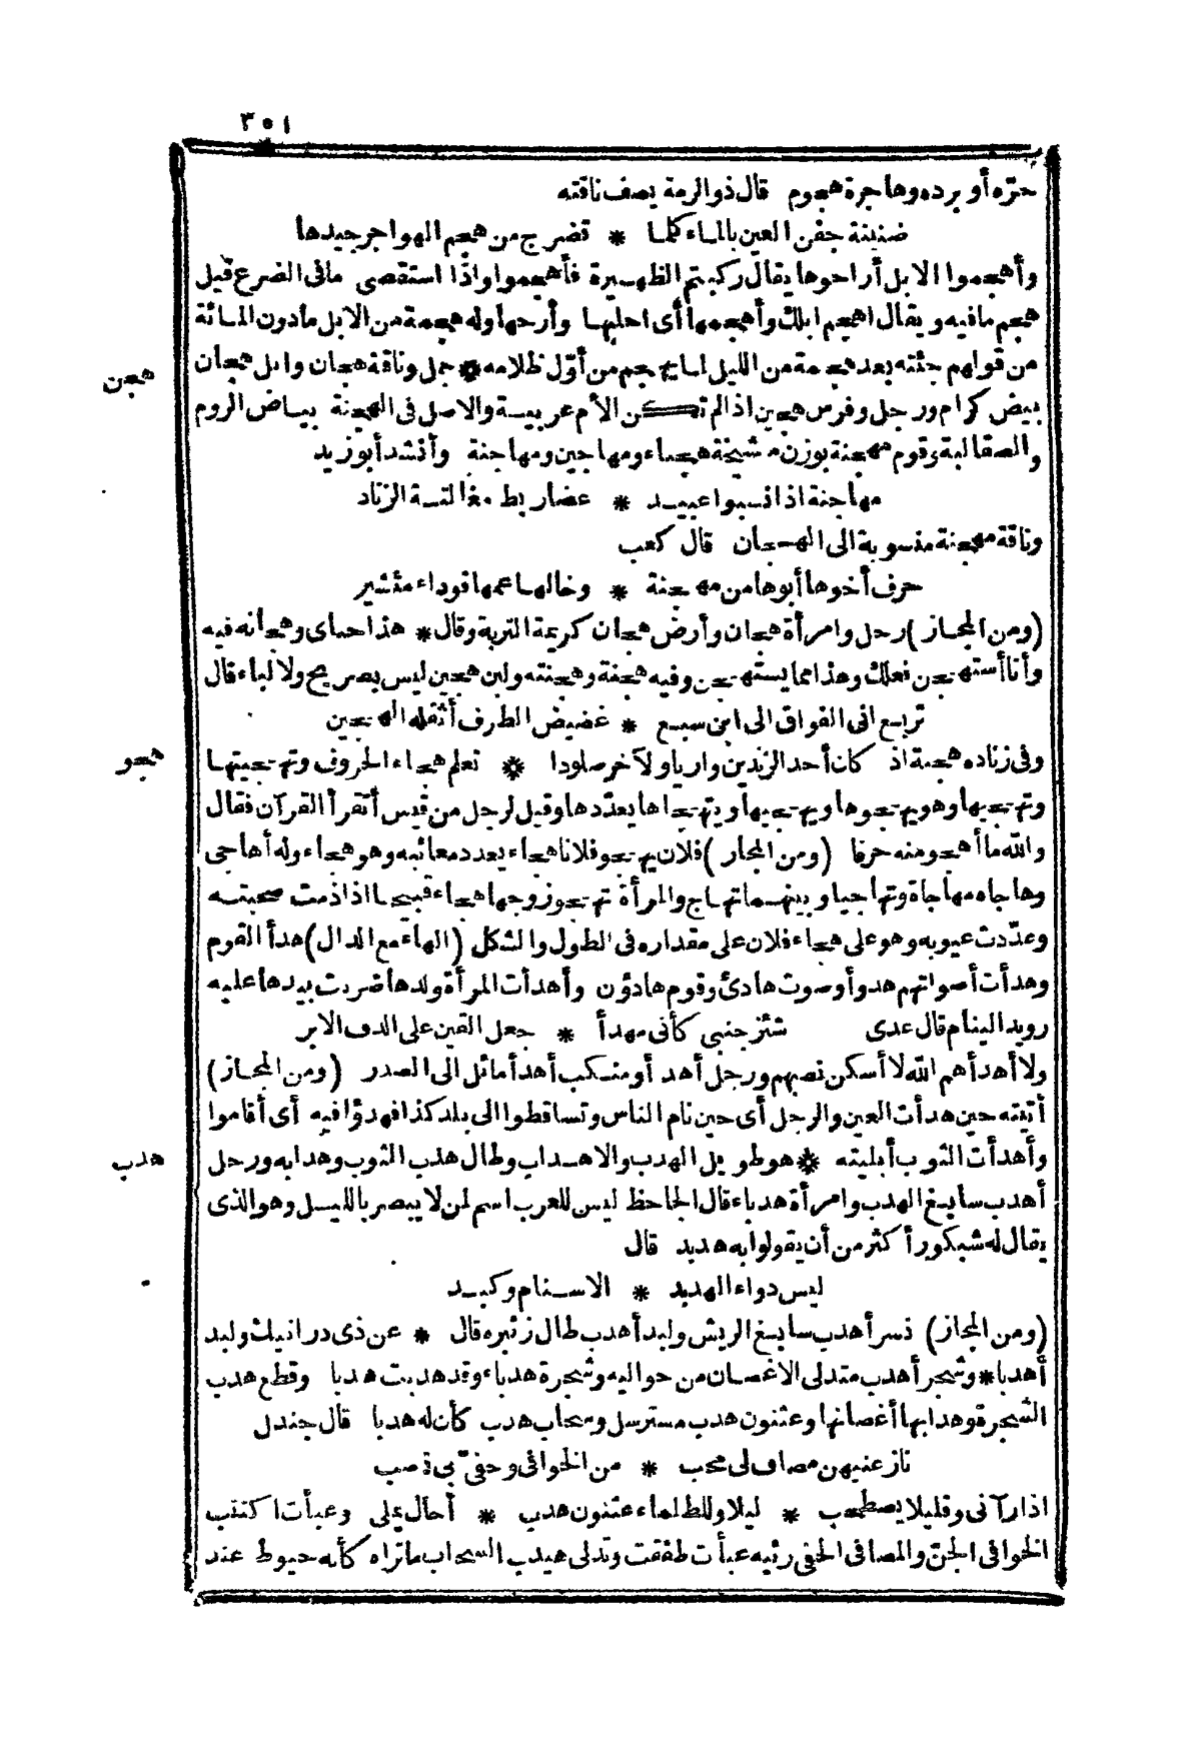 ٣٥١
حرّه أو برده وهاجرة هجوم قال ذو الرمة يصف ناقته
ضنينة جفن العين بالماء كلما * تضرج من هجم الهواجر جيدها
وأهجموا الابل أراحوها يقال ركبتم الظهيرة فأهجموا واذا استقصى مافى الضرع قيل
هجم مافيه ويقال اهجم ابلك وأهجمها أى احلبها وأرحها وله هجمة من الابل مادون المائة
من قولهم جئته بعد هجمة من الليل لما يهجم من أوّل ظلامه * جمل وناقة هجان وابل هجان
هجن
بيض كرام ورجل وفرس هجين اذا لم تكن الأم عربية والاصل فى الهجنة بياض الروم
والصقالبة وقوم مهجنة بوزن مشيخة هجناء ومهاجين ومهاجنة وأنشد أبو زيد
مهاجنة اذا نسبوا عبيد * عضاريط مغالثة الزناد
وناقة مهجنة منسوبة الى الهجان قال كعب
حرف أخوها أبوها من مهجنة * وخالها عمها قوداء مئشير
(ومن المجاز) رجل وامرأة هجان وأرض هجان كريمة التربة وقال * هذا جناى وهجانه فيه
وأنا أستهجن فعلك وهذا مما يستهجن وفيه هجنة وهجنته ولبن هجين ليس بصريح ولا لباء قال
تربع انى الفواق الى ابن سبع * غضيض الطرف أثقله الهجين
وفى زناده هجنة اذ كان أحد الزندين واريا والآخر صلودا * تعلم هجاء الحروف وتهجيتها
هجو
وتهجيها وهو يهجوها ويهجيها ويتهجاها يعدّدها وقيل لرجل من قيس أتقرأ القرآن فقال
والله ما أهجو منه حرفا (ومن المجاز) فلان يهجو فلانا هجاء يعدد معائبه وهو هجاء وله أهاجى
وهاجاه مهاجاة وتهاجيا وبينهما تهاج والمرأة تهجو زوجها هجاء قبيحا اذا ذمت صحبته
وعدّدت عيوبه وهو على هجاء فلان على مقداره فى الطول والشكل (الهاء مع الدال) هدأ القوم
وهدأت أصواتهم هدوأ وصوت هادئ وقوم هادؤن وأهدأت المرأة ولدها ضربت بيدها عليه
رويدا لينام قال عدى شئز جنبى كأنى مهدأ * جعل القين على الدف الابر
ولا أهدأهم الله لا أسكن نصبهم ورجل أهدأ ومنكب أهدأ مائل الى الصدر (ومن المجاز)
أتيته حين هدأت العين والرجل أى حين نام الناس وتساقطوا الى بلد كذا فهدؤا فيه أى أقاموا
وأهدأت الثوب أبليته * هو طويل الهدب والاهداب وطال هدب الثوب وهدابه ورجل
هدب
أهدب سابغ الهدب وامرأة هدباء قال الجاحظ ليس للعرب اسم لمن لا يبصر بالليل وهو الذى
يقال له شبكور أكثر من أن يقولوا به هدبد قال
ليس دواء الهدبد * الا سنام وكبد
(ومن المجاز) نسر أهدب سابغ الريش ولبد أهدب طال زئبره قال * عن ذى درانيك ولبد
أهدبا * وشجر أهدب متدلى الاغصان من حواليه وشجرة هدباء وقد هدبت هدبا وقطع هدب
الشجرة وهدابها أغصانها وعثنون هدب مسترسل وسحاب هدب كأن له هدبا قال جندل
نازعنيهن مصاف لى محب * من الخوافى وحفىّ بى نصب
اذا رآنى وقليلا يصطحب * ليلا وللظلماء عثنون هدب * أحال على وعبأت اكتئب
الخوافى الجنّ والمصافى الحفى رئيه عبأت طفقت وتدلى هيدب السحاب ماتراه كأنه خيوط عند